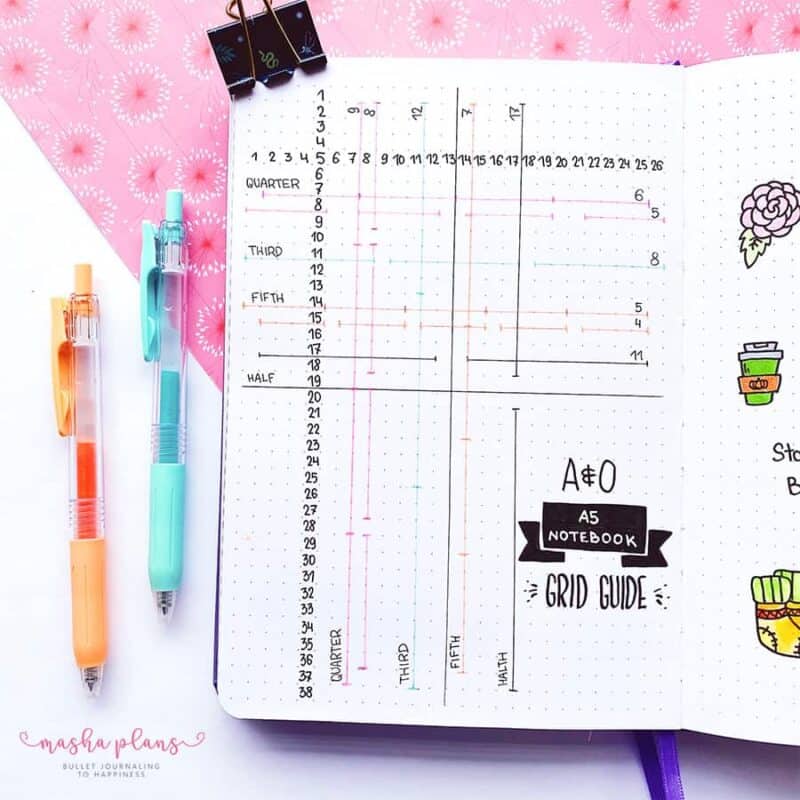 1
2
3
4
1 2 3 4 5 6 7 8 9 10 11 12 13 14 15 16 17 18 19 20 21 22 23 24 25 26
9 8 12 7 17
6
QUARTER
7
6
8
5
9
10
THIRD
11
8
12
13
FIFTH
14
5
15
4
16
17
11
18
HALF
19
20
21
22
23
24
25
26
27
28
29
30
31
32
33
34
35
36
37
38
QUARTER
THIRD
FIFTH
HALTH
A&O
A5
NOTEBOOK
GRID GUIDE
masha plans
BULLET JOURNALING
TO HAPPINESS